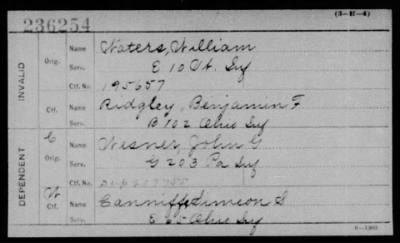 236254
(3-H-4)
INVALID
Orig.
Name Waters, William
Serv. E 10 Vt. Inf
Ctf. No. 195657
Ctf.
Name Ridgley, Benjamin F
Serv. B 102 Ohio Inf
DEPENDENT
C
Orig.
Name Wesner, John G
Serv. G 203 Pa Inf
Ctf. No.
W
Ctf.
Name Canniff Simeon S
Serv. Ohio Inf